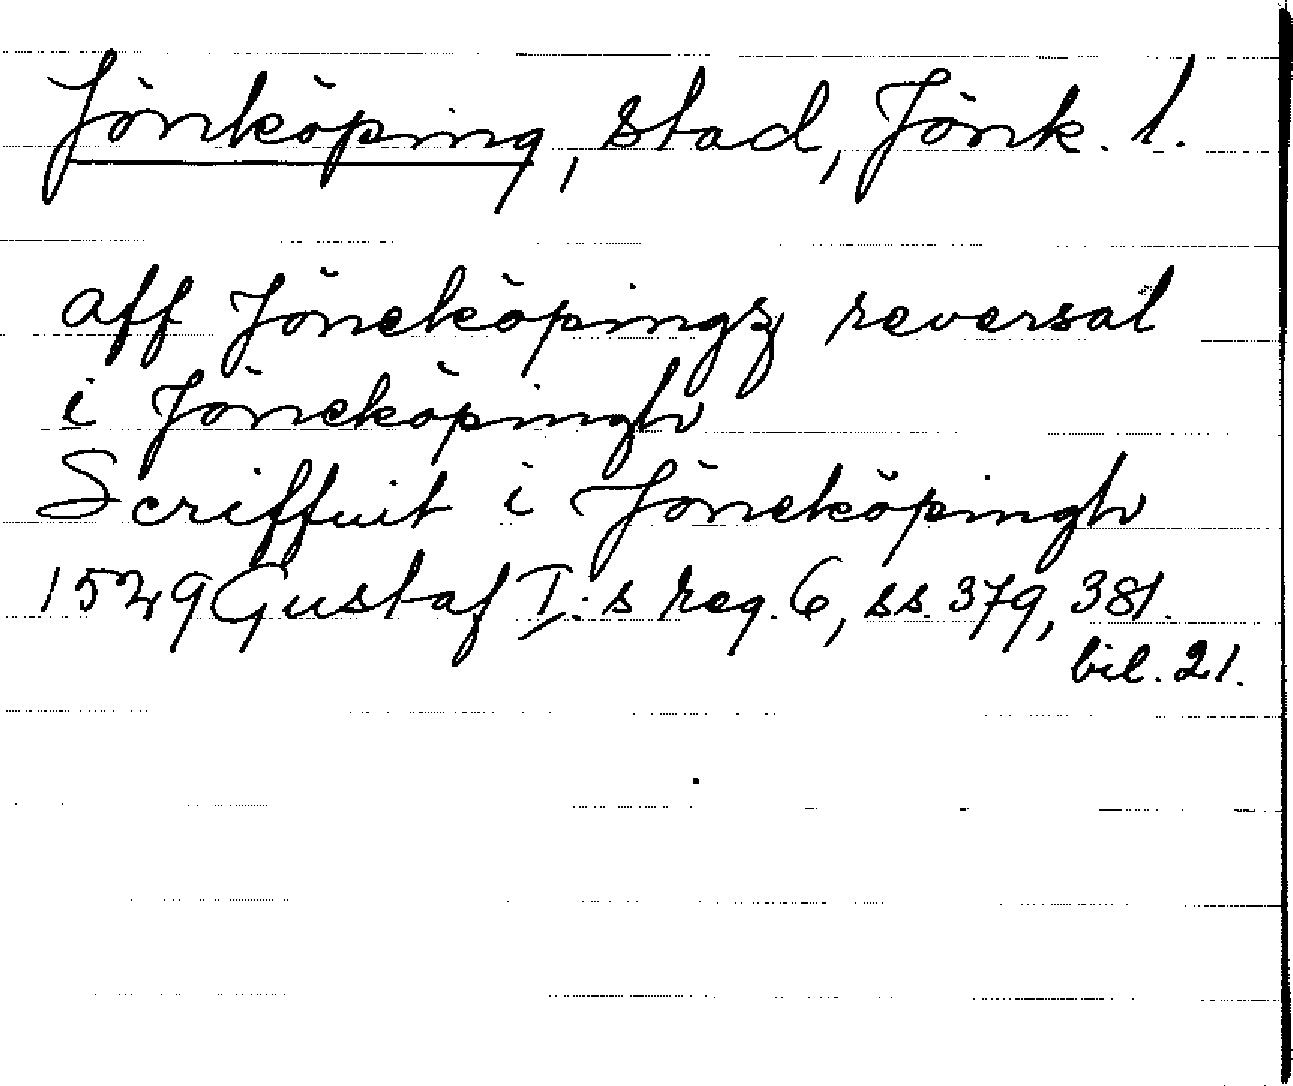 Jönköping, stad, Jönk. l.
aff Jöneköpingz reversal
i Jöneköpingh
Scriffuit i Jöneköpingh
1529 Gustaf I:s reg. 6, ss. 379, 381.
bil. 21.